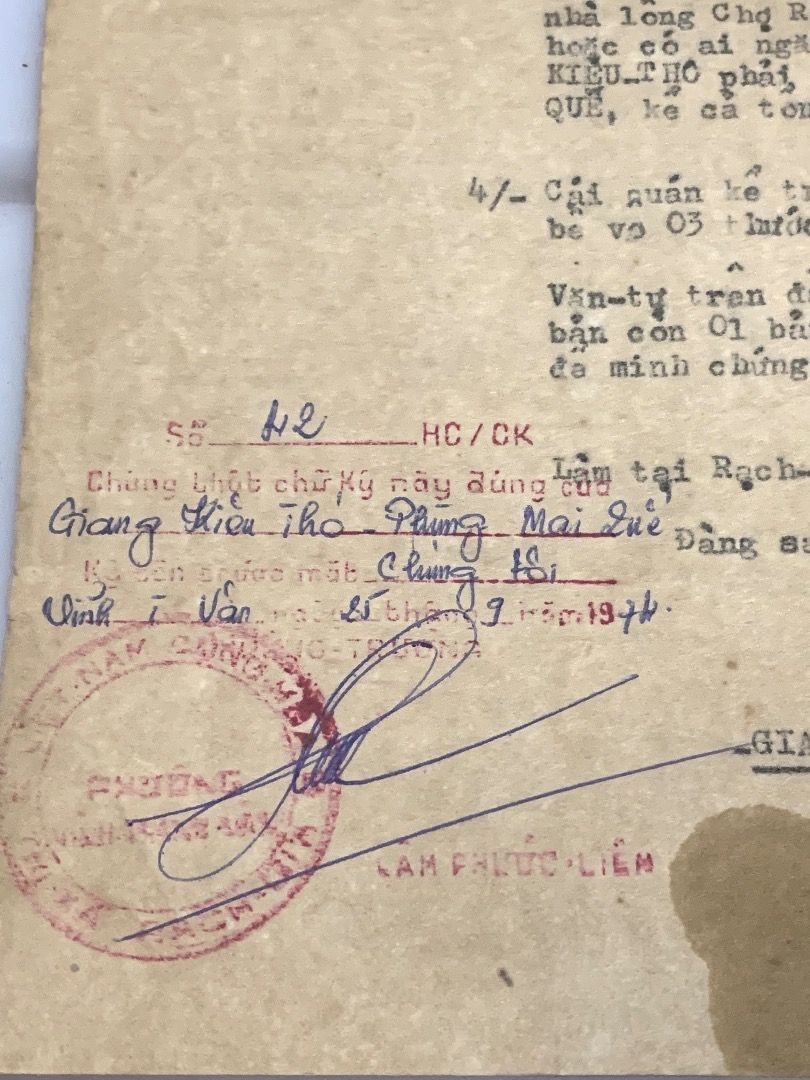 nhà lồng Chợ R
hoặc có ai ngă
KIỀU-THO phải
QUẾ, kể cả tốn
4/- Cái quán kể tr
bề vo 03 thước
Văn-tự trên đ
bản còn 01 bả
để minh chứng
Số 42 HC/CK
Chứng thật chữ ký này đúng của
Làm tại Rạch-
Giang Kiều Tho - Phùng Mai Quế
Đàng su
Ký tên trước mặt Chúng tôi
Vĩnh T Vân ngày 25 tháng 9 năm 1974.
TRƯỞNG
VIỆT-NAM CỘNG-HÒA
PHƯỜNG
THỊ-XÃ RẠCH-GIÁ
GIA
LÂM PHƯỚC-LIÊM